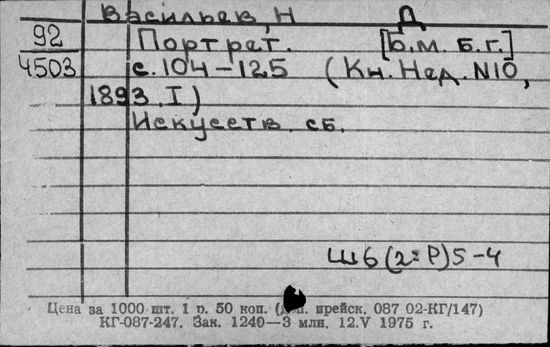 Васильев, Н Д
92 Портрет. [б.м. б.г.]
4503 с. 104–125 (Кн. Нед. N10,
1893. I)
Искусств. сб.
Ш6(2=Р)5-4
Цена за 1000 шт. 1 р. 50 коп. прейск. 087 02-КГ/147)
КГ-087-247. Зак. 1240—3 млн. 12.V 1975 г.